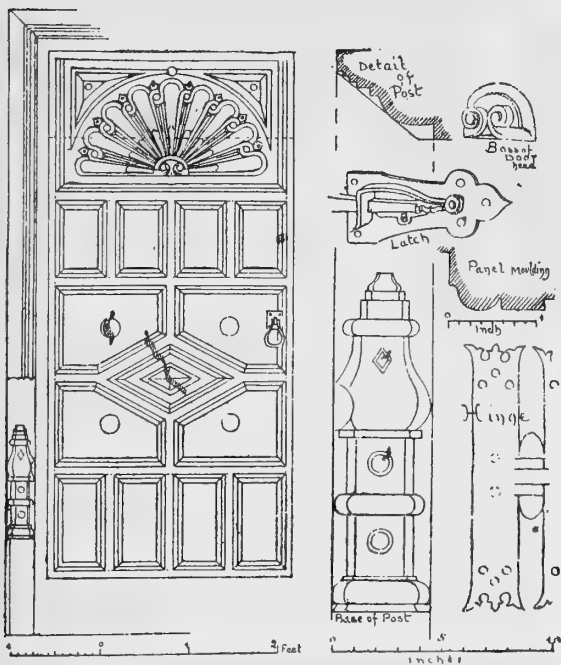 Detail
of
Post
Boss of
Door
head
Latch
Panel Moulding
0 1
inch
Hinge
Base of Post
1 0 1 2 Feet
0 5 10
inches